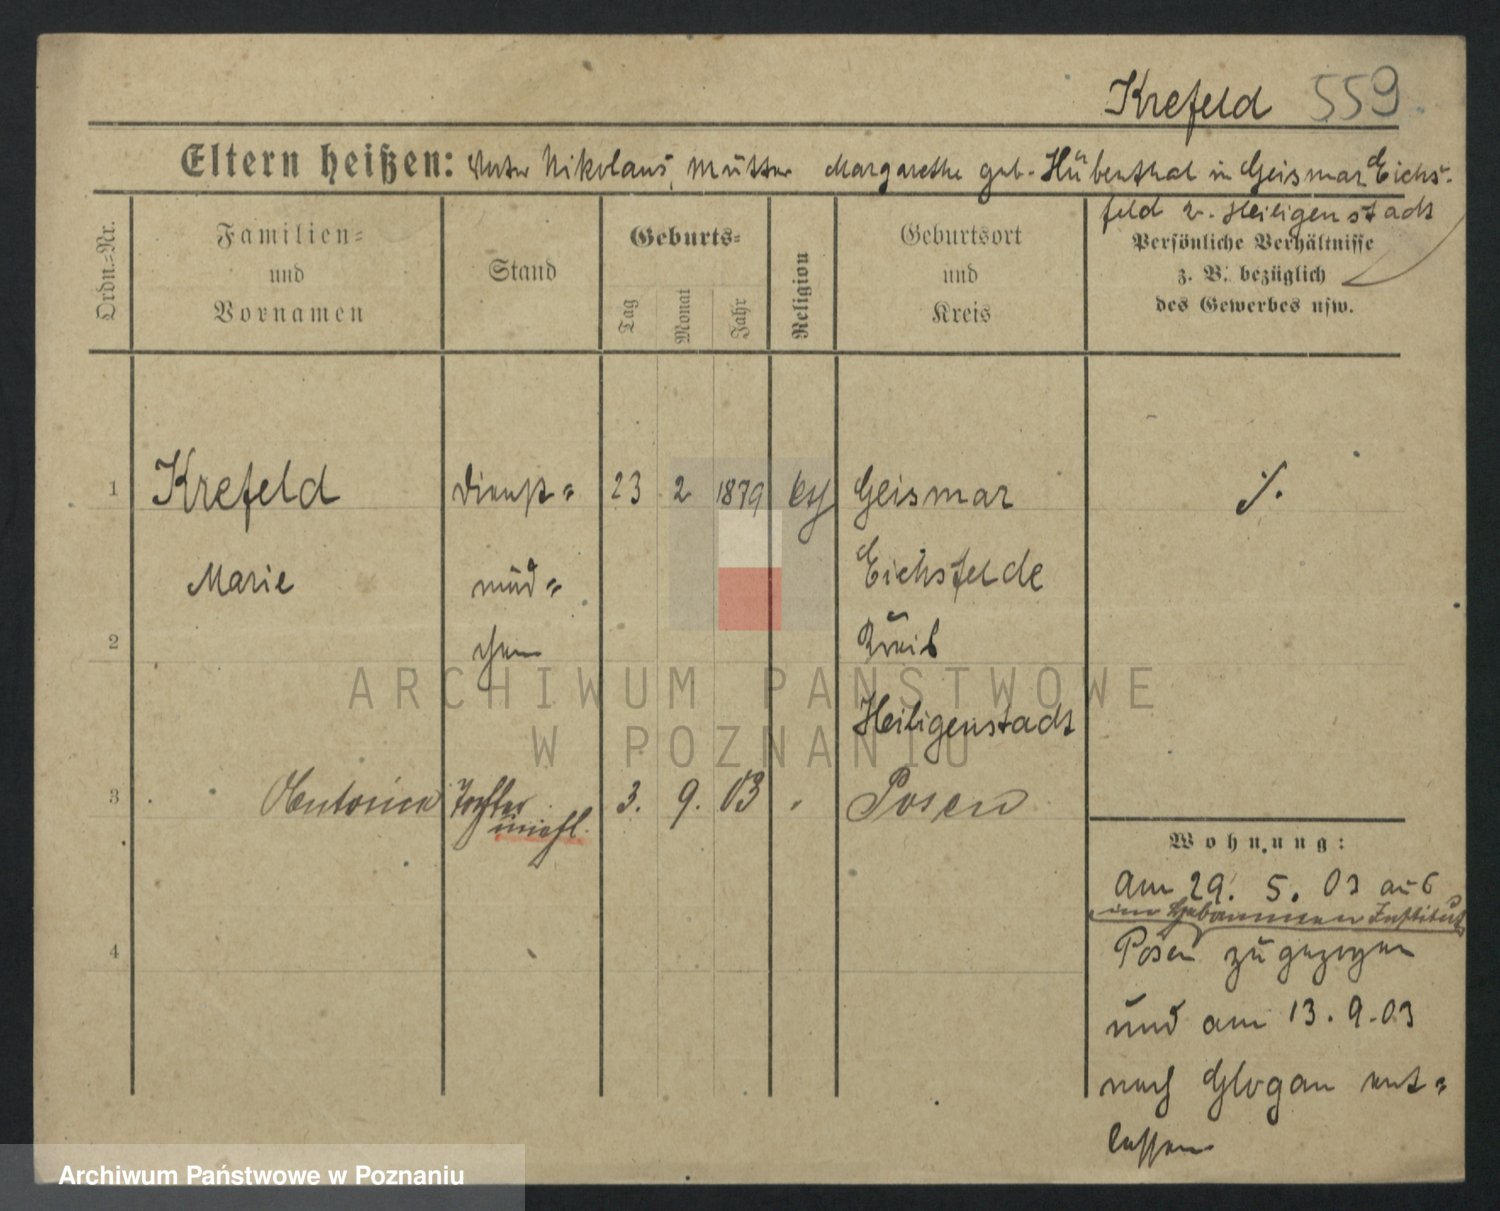 Krefeld 559
Eltern heißen: Vater Nikolaus, Mutter Margarethe geb. Hübenthal in Geismar Eichs-
feld Kr. Heiligenstadt
Ordn.=Nr.
Familien=
und
Vornamen
Stand
Geburts=
Tag
Monat
Jahr
Religion
Geburtsort
und
Kreis
Persönliche Verhältnisse
z. B. bezüglich
des Gewerbes usw.
1 Krefeld Dienst= 23 2 1879 Geismar ./.
Marie mäd= Eichsfelde
2 chen Kreis
Heiligenstadt
3 Tochter 3. 9. 03 Posen
unehl.
Wohnung:
Am 29. 5. 03 aus
im Hebammen Institut
4 Posen zugezogen
und am 13. 9. 03
nach Glogau ent=
lassen
ARCHIWUM PAŃSTWOWE
W POZNANIU
Archiwum Państwowe w Poznaniu